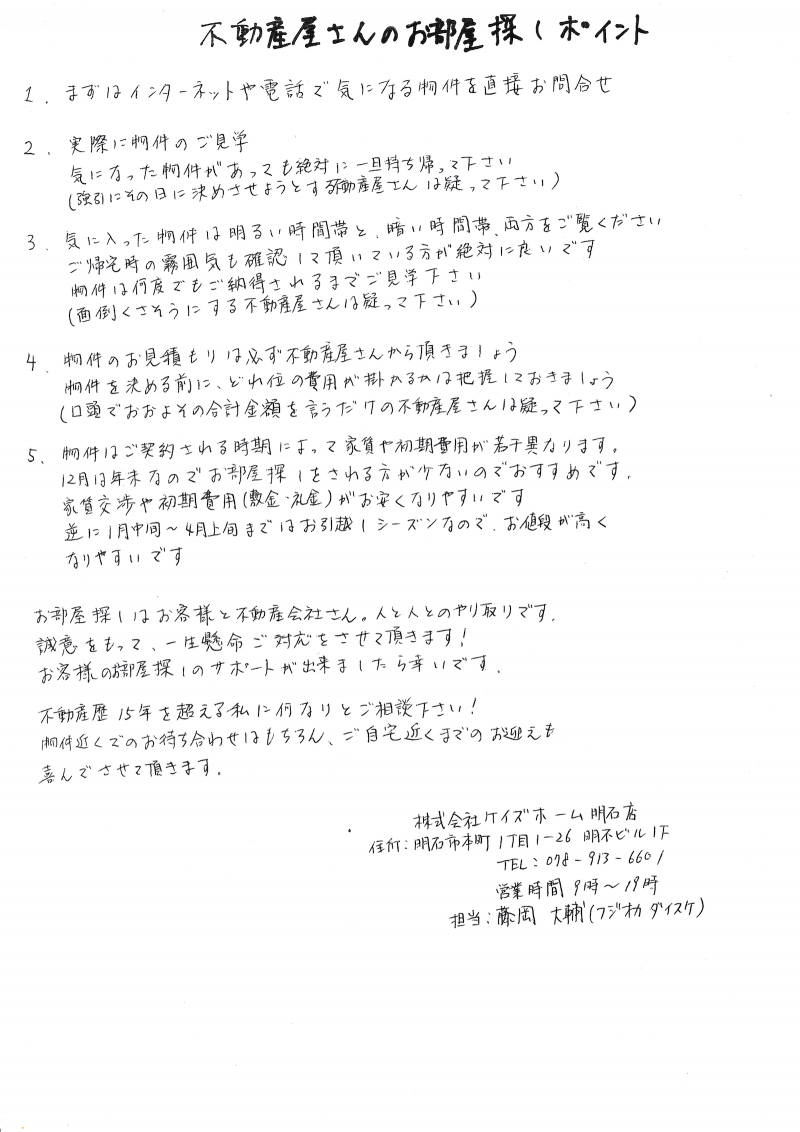 不動産屋さんのお部屋探しポイント
1. まずはインターネットや電話で気になる物件を直接お問合せ
2. 実際に物件のご見学
気になった物件があっても絶対に一旦持ち帰って下さい
(強引にその日に決めさせようとする不動産屋さんは疑って下さい)
3. 気に入った物件は明るい時間帯と、暗い時間帯、両方をご覧ください
ご帰宅時の雰囲気も確認して頂いている方が絶対に良いです
物件は何度でもご納得されるまでご見学下さい
(面倒くさそうにする不動産屋さんは疑って下さい)
4. 物件のお見積もりは必ず不動産屋さんから頂きましょう
物件を決める前に、どれ位の費用が掛かるかは把握しておきましょう
(口頭でおおよその合計金額を言うだけの不動産屋さんは疑って下さい)
5. 物件はご契約される時期によって家賃や初期費用が若干異なります。
12月は年末なのでお部屋探しをされる方が少ないのでおすすめです.
家賃交渉や初期費用(敷金・礼金)がお安くなりやすいです
逆に1月中旬～4月上旬まではお引越しシーズンなので、お値段が高く
なりやすいです
お部屋探しはお客様と不動産会社さん。人と人とのやり取りです.
誠意をもって、一生懸命ご対応をさせて頂きます!
お客様のお部屋探しのサポートが出来ましたら幸いです.
不動産歴15年を超える私に何なりとご相談下さい!
物件近くでのお待ち合わせはもちろん、ご自宅近くまでのお迎えも
喜んでさせて頂きます.
株式会社ケイズホーム明石店
住所:明石市本町1丁目1-26 明不ビル1F
TEL:078-913-6601
営業時間 9時～19時
担当:藤岡 大輔(フジオカ ダイスケ)